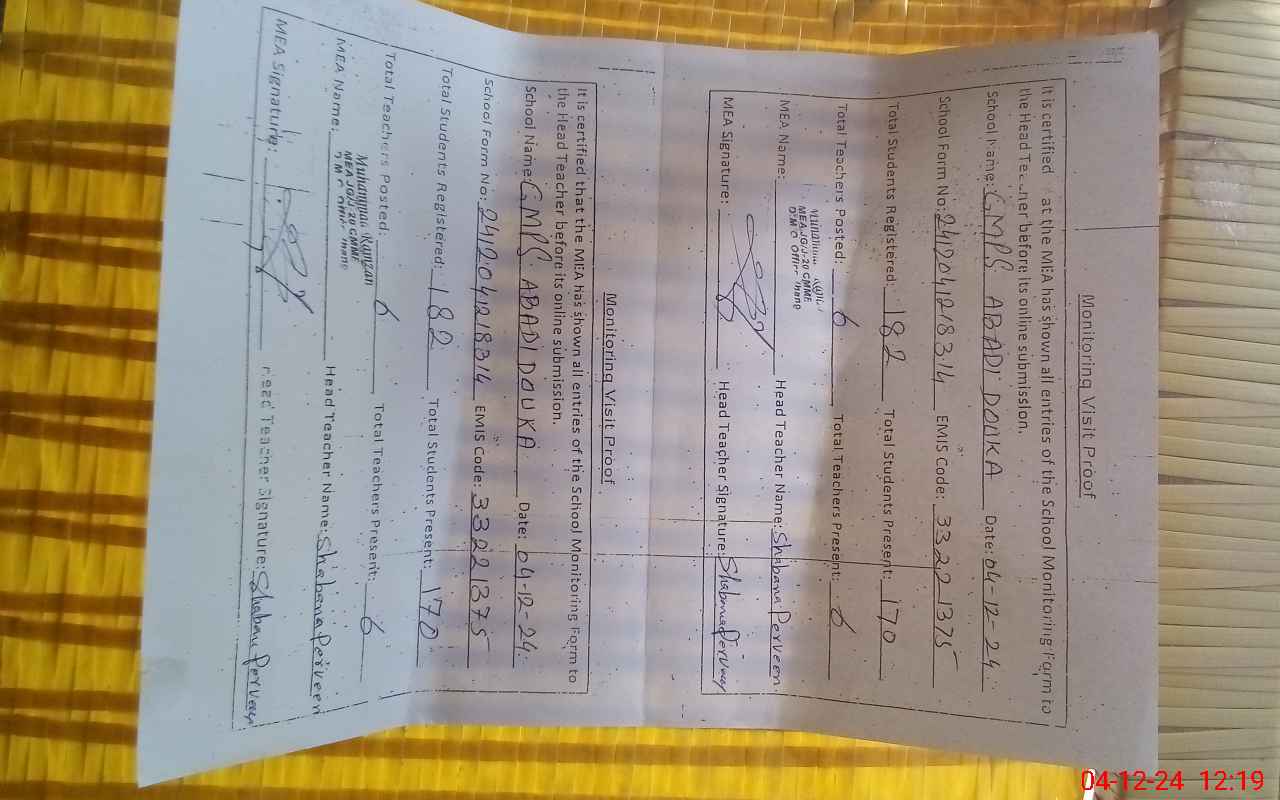 Monitoring Visit Proof
It is certified at the MEA has shown all entries of the School Monitoring Form to
the Head Teacher before its online submission.
School Name: GMPS ABADI DOUKA Date: 04-12-24
School Form No: 2412041218314 EMIS Code: 33221375
Total Students Registered: 182 Total Students Present: 170
Total Teachers Posted: 6 Total Teachers Present: 6
MEA Name: Head Teacher Name: Shabana Perveen
MEA Signature: Head Teacher Signature: Shabana Perveen
Monitoring Visit Proof
It is certified that the MEA has shown all entries of the School Monitoring Form to
the Head Teacher before its online submission.
School Name: GMPS ABADI DOUKA Date: 04-12-24
School Form No: 2412041218314 EMIS Code: 33221375
Total Students Registered: 182 Total Students Present: 170
Total Teachers Posted: 6 Total Teachers Present: 6
Muhammad Ramzan
MEA Name: Head Teacher Name: Shabana Perveen
MEA Signature: Head Teacher Signature: Shaban Perveen
04-12-24 12:19